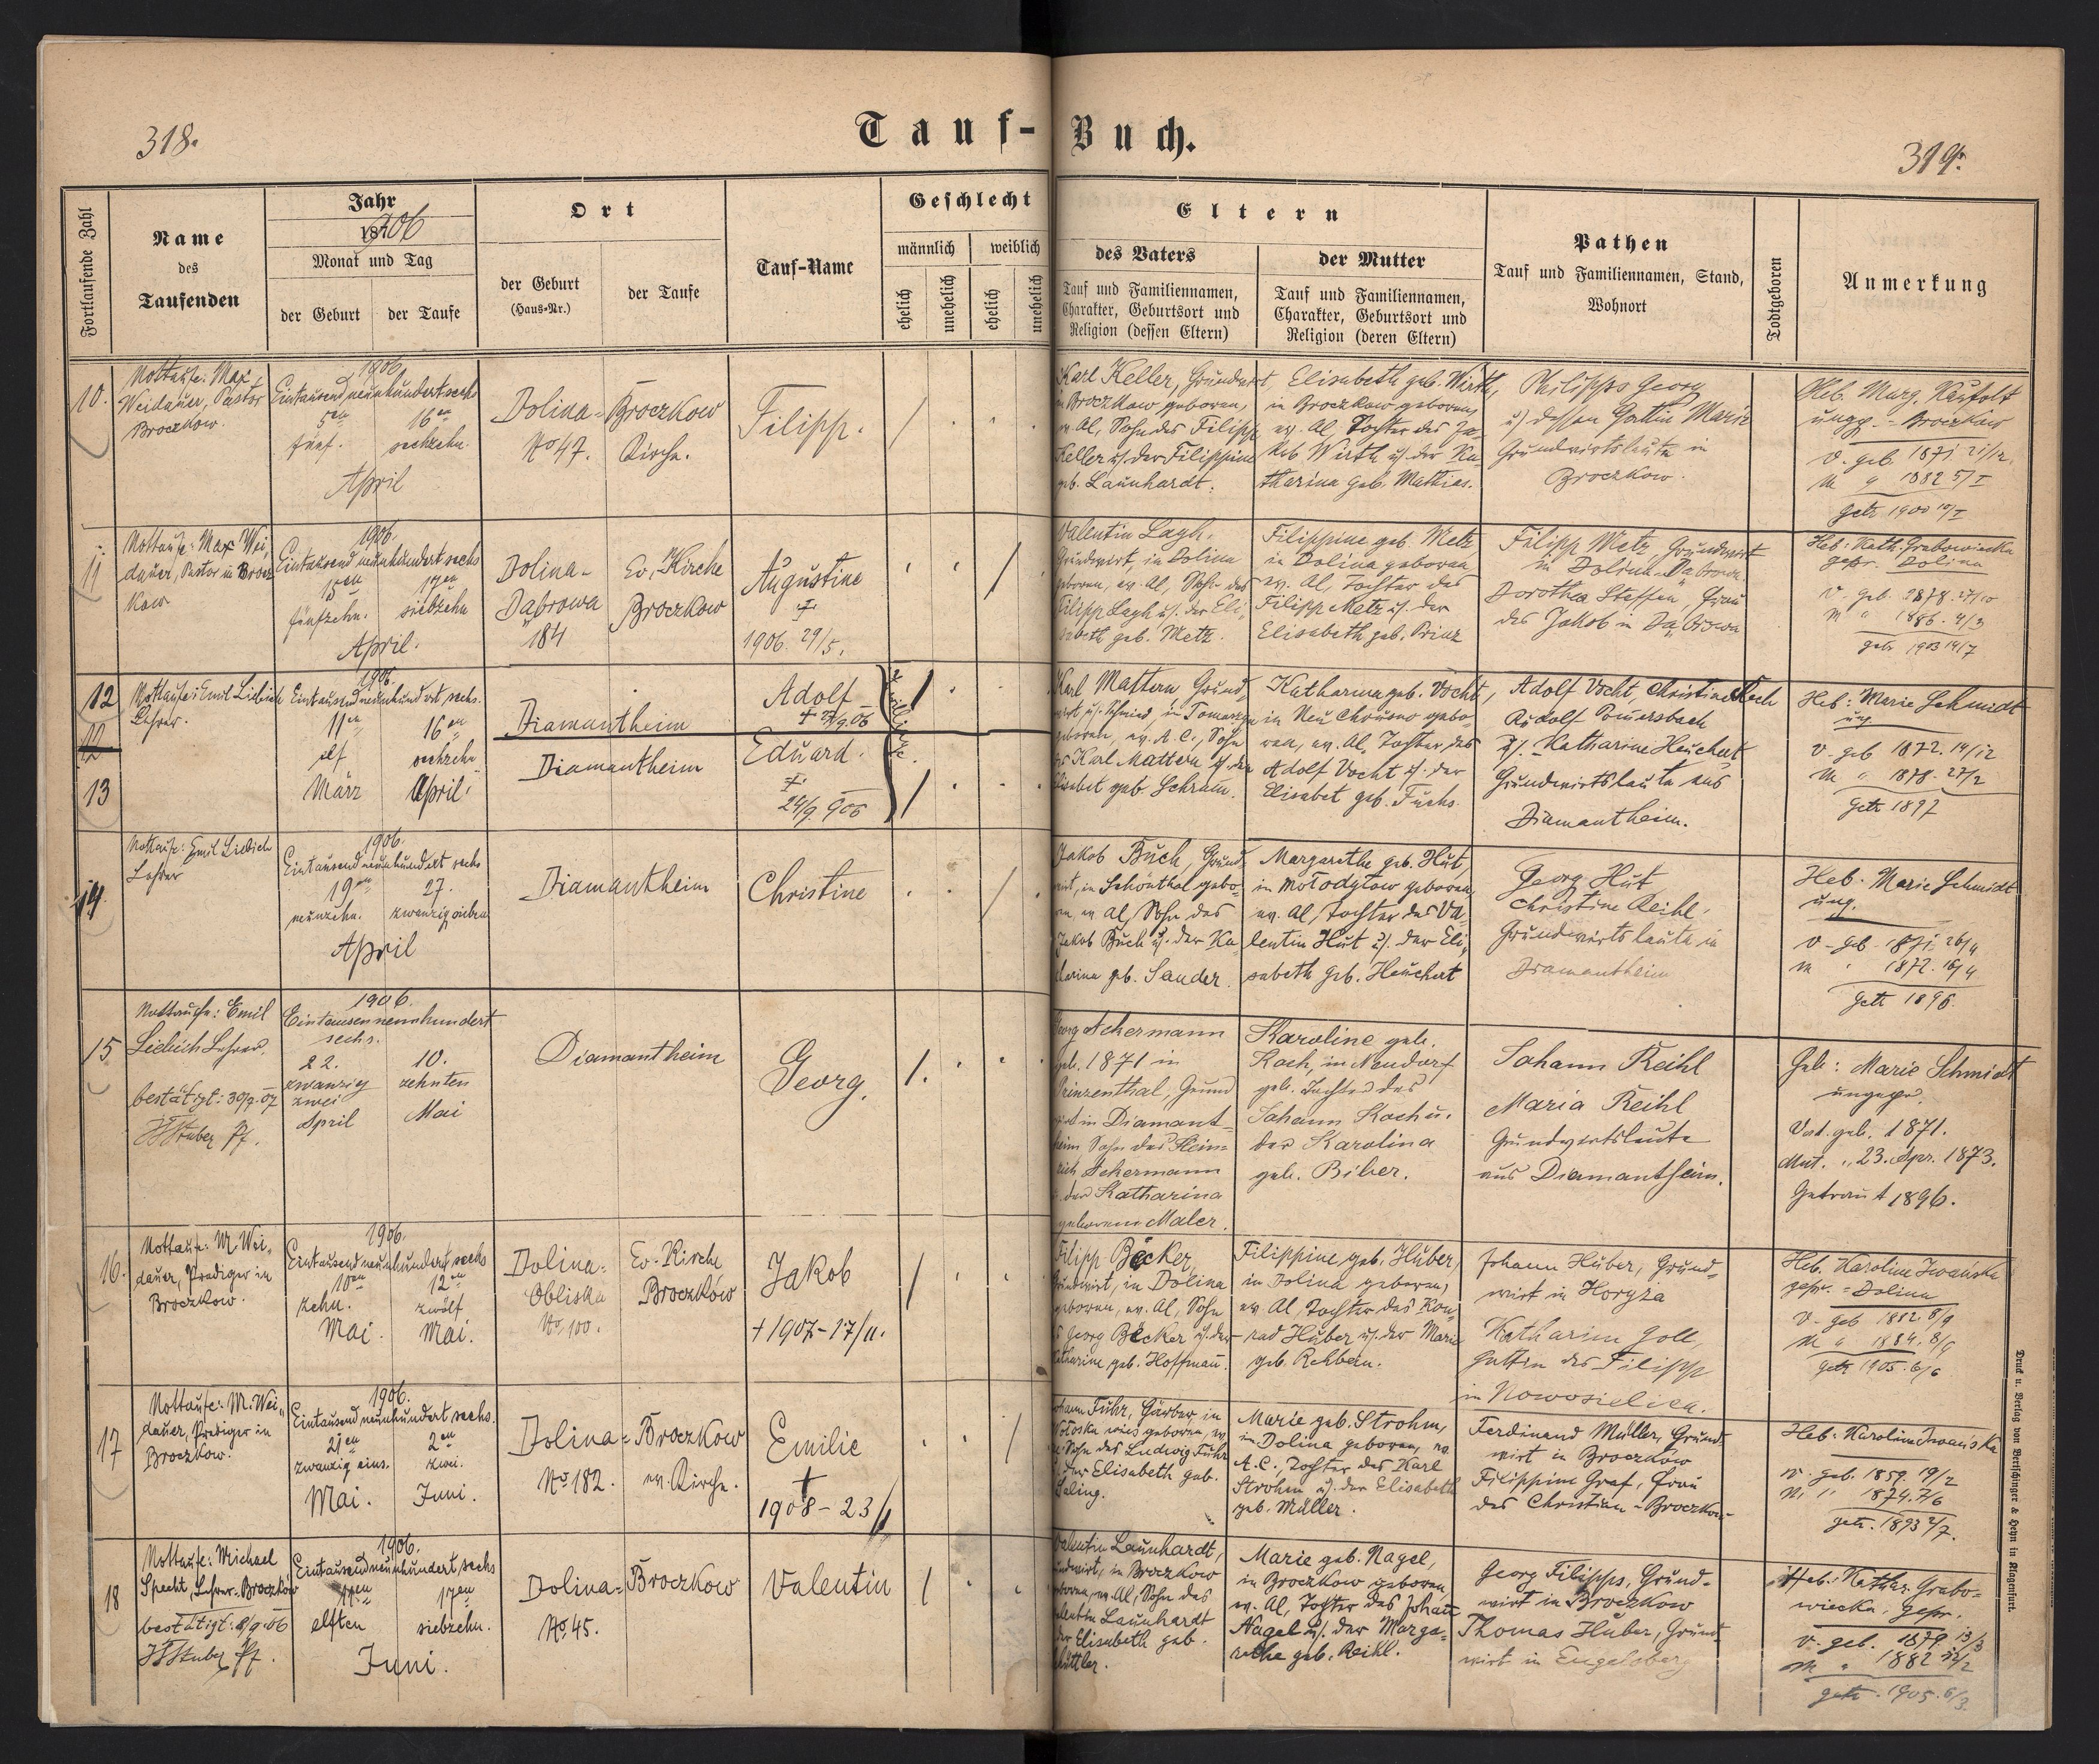 318.
Tauf-Buch.
319.
Fortlaufende Zahl
Name
des
Taufenden
Jahr
1906
Monat und Tag
der Geburt
der Taufe
Ort
der Geburt
(Haus-Nr.)
der Taufe
Tauf-Name
Geschlecht
männlich
weiblich
ehelich
unehelich
ehelich
unehelich
Eltern
des Vaters
Tauf und Familiennamen,
Charakter, Geburtsort und
Religion (dessen Eltern)
der Mutter
Tauf und Familiennamen,
Charakter, Geburtsort und
Religion (deren Eltern)
Pathen
Tauf und Familiennamen, Stand,
Wohnort
Todtgeboren
Anmerkung
10.
Nottaufe: Max
Weidauer, Pastor
Broczkow.
1906
Eintausend neunhundert sechs
5en
fünf.
16en
sechzehn.
April
Dolina-
No 47.
Broczkow
Kirche.
Filipp.
/
Karl Keller, Grundwirt
in Broczkow geboren,
ev. Al, Sohn des Filipp
Keller u. der Filippine
geb. Launhardt.
Elisabeth geb. Wirth,
in Broczkow geboren,
ev. Al, Tochter des Ja-
kob Wirth u. der Ka-
tharina geb. Mathias.
Philipps Georg
u. dessen Gattin Marie
Grundwirtsleute in
Broczkow.
Heb. Marg.
ungg. - Broczkow
V. geb. 1871 21/12.
M " 1882 5/I
getr 1900 10/I
11
Nottaufe: Max Wei-
dauer, Pastor in Brocz
kow
1906.
Eintausend neunhundert sechs
15en
fünfzehn.
17en
siebzehn
April.
Dolina-
Dąbrowa
184
Ev. Kirche
Broczkow
Augustine
†
1906. 29/5.
/
Valentin Lagh,
Grundwirt, in Dolina
geboren, ev. Al, Sohn des
Filipp Lagh u. der Eli-
sabeth geb. Metz.
Filippine geb. Metz
in Dolina geboren
ev. Al, Tochter des
Filipp Metz u. der
Elisabeth geb. Prinz
Filipp Metz, Grundwirt
in Dolina-Dąbrowa
Dorothea Steffen, Frau
des Jakob in Dąbrowa
Heb: Kath. Grabowiecka
gepr. Dolina
V. geb. 1878. 27/10
M " 1886. 4/3
getr 1903 14/7
12
13
Nottaufe: Emil Liebich
Lehrer.
1906.
Eintausend neunhundert sechs.
11en
elf
März
16en
sechzehn
April.
Diamantheim
Diamantheim
Adolf
Eduard.
†
24/9 906
Zwillinge.
/
/
Karl Mattern Grund-
wirt u. Schmied, in
geboren, ev. A. C., Sohn
des Karl Mattern u. der
Elisabet geb. Schramm.
Katharina geb. Vocht,
in Neu Chrusno gebo-
ren, ev. Al, Tochter des
Adolf Vocht u. der
Elisabet geb. Fuchs.
Adolf Vocht, Christine Koch
Rudolf Pomersbach
u. Katharine Heuchert
Grundwirtsleute aus
Diamantheim.
Heb: Marie Schmidt
ung
V. geb 1872. 14/12
M " 1878. 27/2
getr 1897
14.
Nottaufe: Emil Liebich
Lehrer
1906.
Eintausend neunhundert sechs
19en
neunzehn.
27.
zwanzig sieben
April
Diamantheim
Christine
/
Jakob Buch, Grund-
wirt, in Schönthal gebo-
ren, ev. Al, Sohn des
Jakob Buch u. der Ka-
tharina geb. Sander.
Margarethe geb. Hut,
in Mołodytow geboren,
ev. Al, Tochter des Va-
lentin Hut u. der Eli-
sabeth geb. Heuchert
Georg Hut
Christine Reihl,
Grundwirtsleute in
Diamantheim
Heb. Marie Schmidt
ung.
V - geb - 1871. 26/4
M " 1872. 16/4
getr 1896.
15
Nottaufe: Emil
Liebich Lehrer.
bestätigt: 30/9.07
Stuber Pf.
1906.
Eintausen neunhundert
sechs.
22.
zwanzig
zwei
April
10.
zehnten
Mai
Diamantheim
Georg.
/.
Georg Ackermann
geb. 1871 in
Prinzenthal, Grund
wirt in Diamant-
heim Sohn des Hein-
rich Ackermann
u. der Katharina
geborene Maler.
Karoline geb.
Koch, in Neudorf
geb. Tochter des
Johann Koch u.
der Karolina
geb. Biber.
Johann Reihl
Maria Reihl
Grundwirtsleute
aus Diamantheim.
Heb: Marie Schmidt
ungepr.
Vat. geb. 1871.
Mut. " 23. Apr. 1873.
Getraut 1896.
16.
Nottaufe: M. Wei-
dauer, Prediger in
Broczkow.
1906.
Eintausend neunhundert sechs
10en
zehn.
Mai.
12en
zwölf
Mai.
Dolina-
Obliska
No 100.
Ev. Kirche
Broczkow
Jakob
† 1907-17/11.
/
Filipp Bäcker,
Grundwirt, in Dolina
geboren, ev. Al, Sohn
des Georg Bäcker u. der
Katharine geb. Hoffmann.
Filippine geb. Huber,
in Dolina geboren,
ev. Al, Tochter des Kon-
rad Huber u. der Marie
geb. Rehbein.
Johann Huber, Grund-
wirt in Horyza
Katharina Goll,
Gattin des Filipp
in Nowosielica.
Heb. Karoline Iwańska
gepr. = Dolina
V - geb 1882 8/9
M " 1884. 8/9
getr 1905. 6/6
17
Nottaufe: M. Wei-
dauer, Prediger in
Broczkow.
1906.
Eintausend neunhundert sechs.
21en
zwanzig eins.
Mai.
2en
zwei.
Juni.
Dolina-
No 182.
Broczkow
ev. Kirche.
Emilie
†
1908-23/
/
Johann Führ, Gärber, in
geboren, ev.
Al. Sohn des Ludwig Führ
u. der Elisabeth geb.
Saling.
Marie geb. Strohm,
in Dolina geboren, ev.
A. C., Tochter des Karl
Strohm u. der Elisabeth
geb. Müller.
Ferdinand Müller, Grund-
wirt in Broczkow
Filippine Graf, Frau
des Christian - Broczkow
Heb: Karoline Iwańska
V. geb. 1859. 19/2
M " 1874. 7/6
getr. 1893 2/7.
18
Nottaufe: Michael
Specht, Lehrer-Broczkow
bestätigt: 8/9.06
Stuber Pf.
1906.
Eintausend neunhundert sechs
11en
elften
17en
siebzehn.
Juni.
Dolina-
No. 45.
Broczkow
Valentin
/
Valentin Launhardt,
Grundwirt, in Broczkow
geboren, ev. Al, Sohn des
Valentin Launhardt
u. der Elisabeth geb.
Marie geb. Nagel,
in Broczkow geboren
ev. Al, Tochter des Johann
Nagel u. der Marga-
rethe geb. Reikl.
Georg Filipps, Grund-
wirt in Broczkow
Thomas Huber, Grund-
wirt in Engelsberg
Heb: Kathar. Grabo-
wiecka, gepr.
V. geb. 1879. 13/3
M " 1882 12/2
getr. 1905. 6/3.
Druck u. Verlag von Bertschinger & Heyn in Klagenfurt.